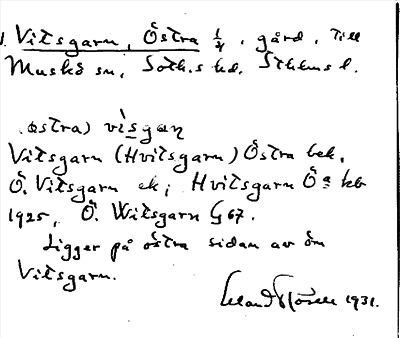 1. Vitsgarn, Östra 1/4, gård, till
Muskö sn, Soth.s hd, Sthlms l.
(östra) visgan
Vitsgarn (Hvitsgarn) Östra bek.
Ö. Vitsgarn ek; Hvitsgarn Öa kb
1925, Ö. Witsgarn G 67.
Ligger på östra sidan av ön
Vitsgarn.
1931.